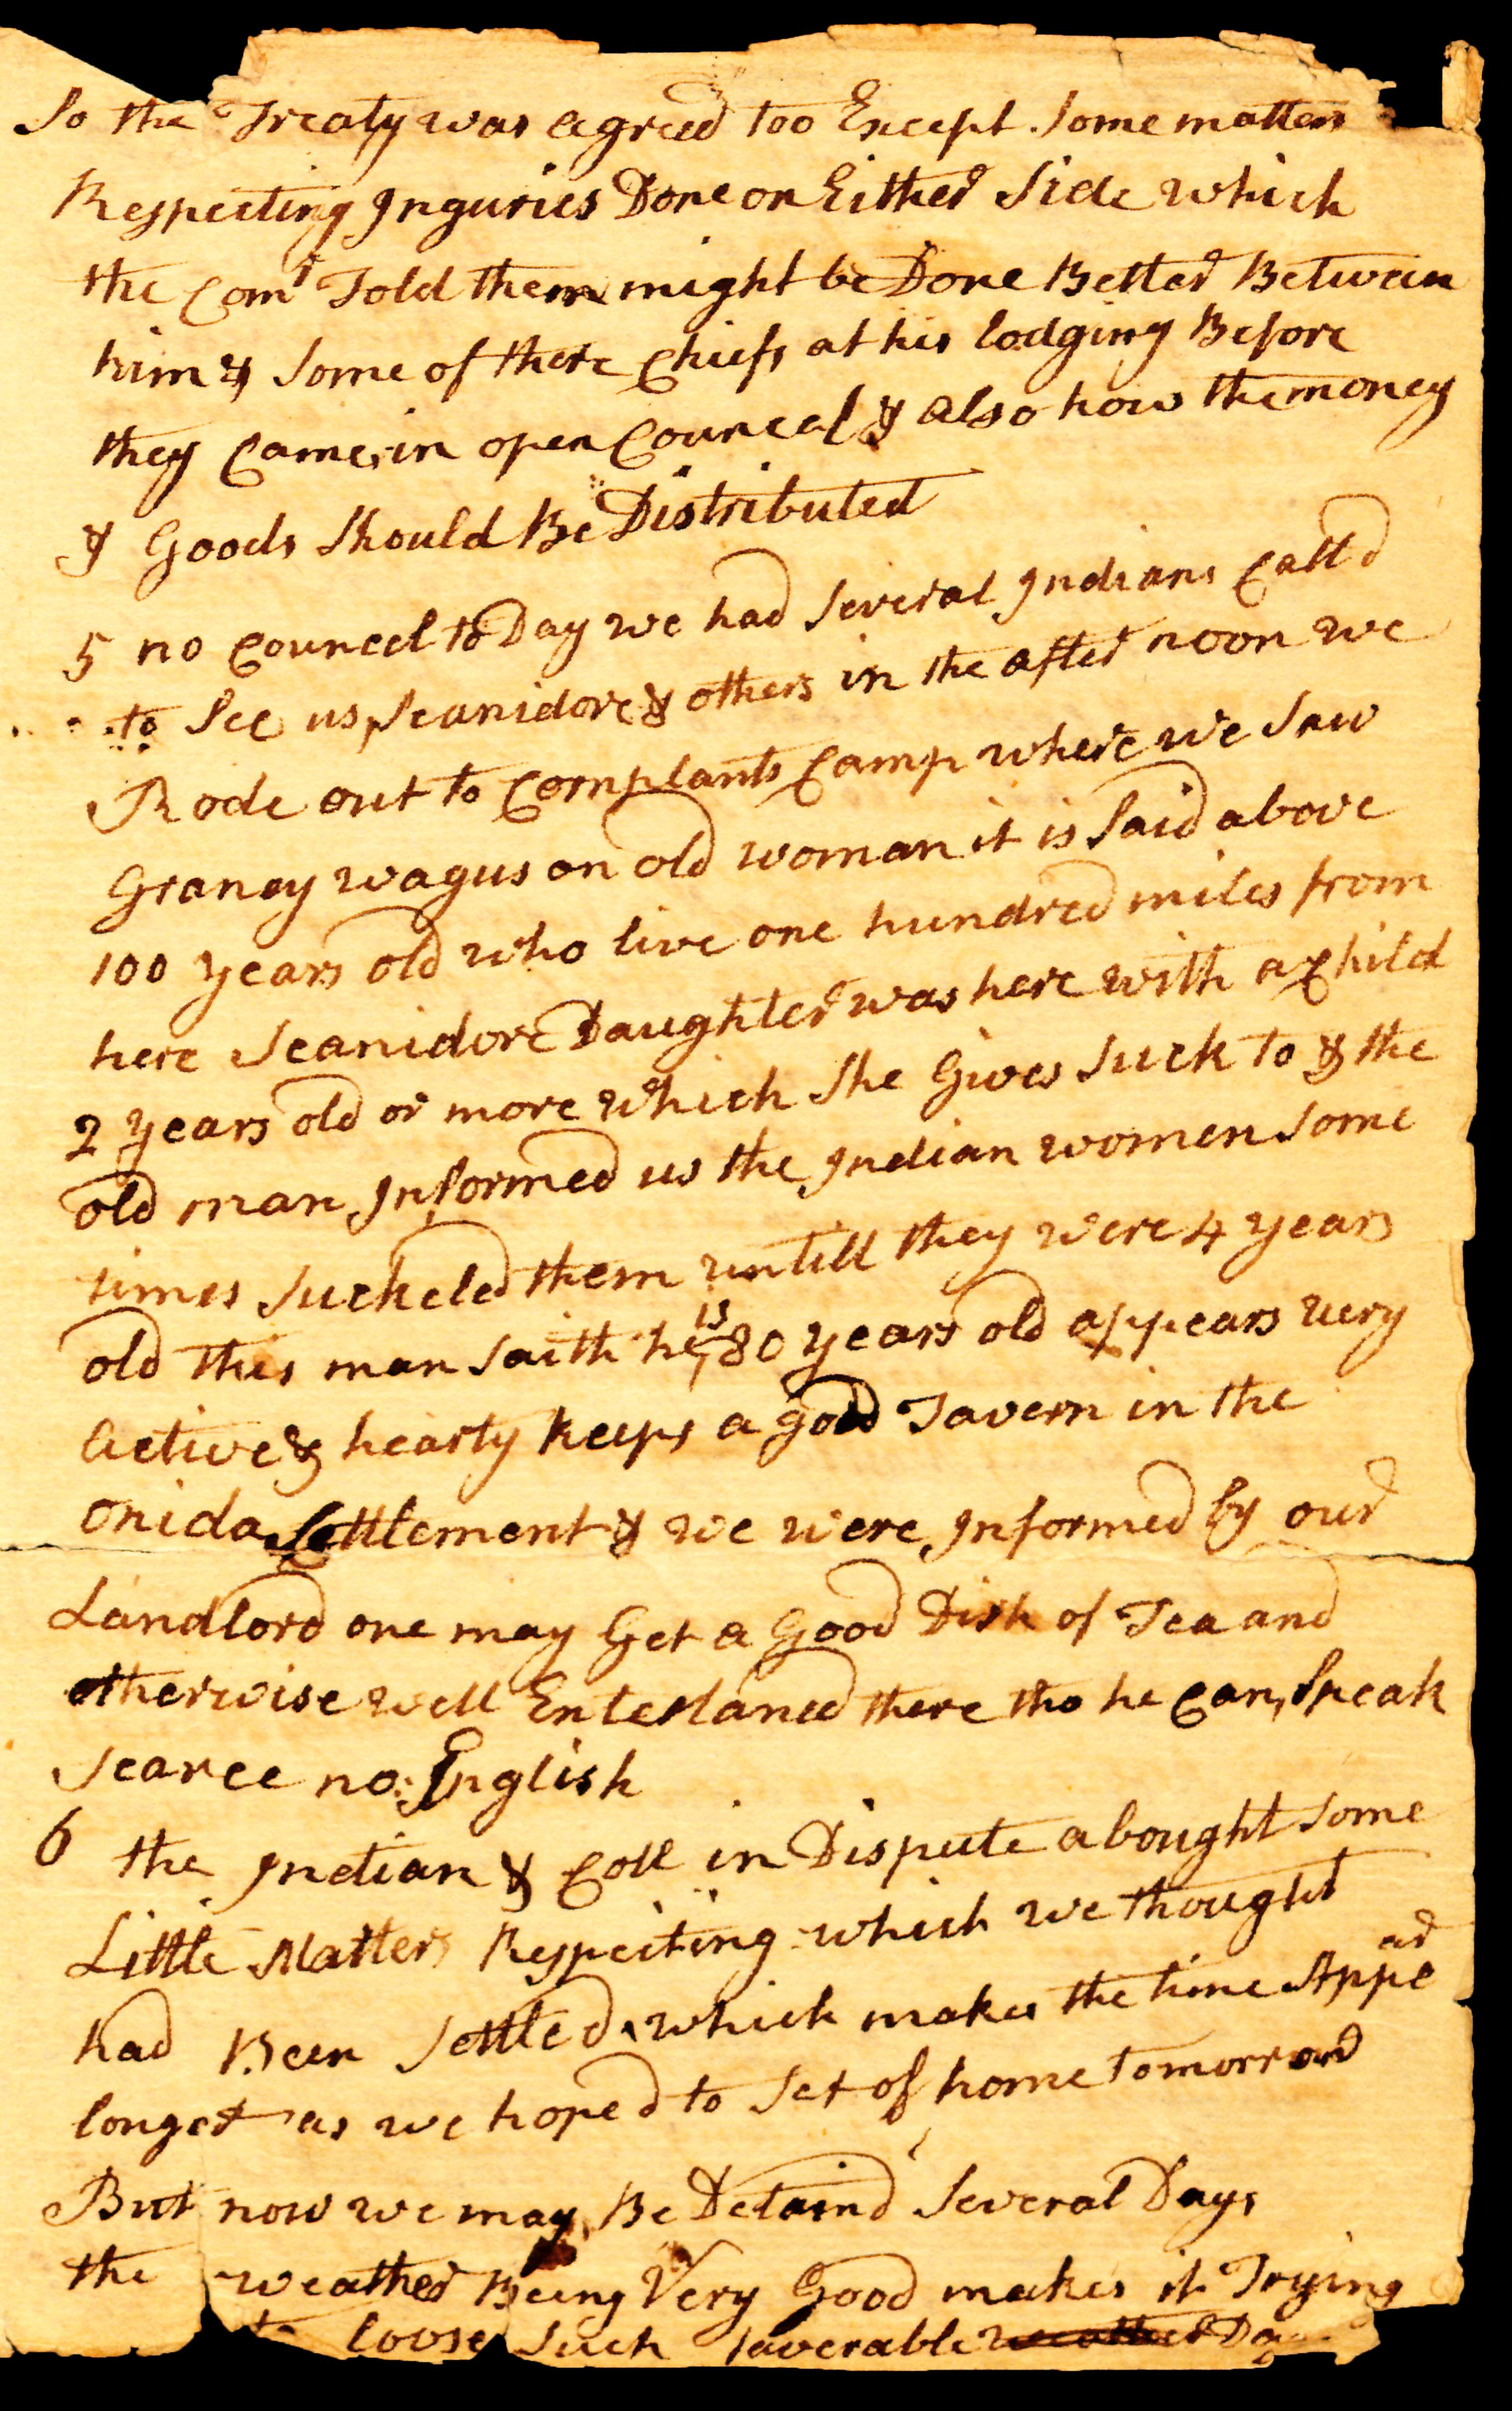 So the Treaty was agreed too Except Some matters
Respecting Inguries Done on Either Side which
the Comr Told them might be Done Better Betwein
him & Some of there Chiefs at his lodging Before
they Came in open Councel & also how the money
& Goods Should Be Distributed
5 no Councel to Day we had Several Indians Calld
to See us Scanidore & others in the after noon we
Rode out to Cornplants Camp where we Saw
Graney wagus an old woman it is Said above
100 years old who live one hundred miles from
here Scanidore Daughter was here with a Child
2 years old or more which She Gives Suck to & the
old man Informed us the Indian women Some
times Suckeled them untill they were 4 years
old this man Saith he is 80 years old appears very
active & hearty keeps a good Tavern in the
onida Settlement & we were Informed by our
Landlord one may Get a Good Dish of Tea and
otherwise well Entertained there tho he Can Speak
Scarce no English
6 the Indian & Coll in Dispute abought Some
Little Matters Respecting which we thought
had Been Settled which makes the time Appear
longer as we hoped to Set of home tomorrow
But now we may Be Detaind Several Days
the weather Being Very Good makes it Trying
to loose Such faverable weather Da